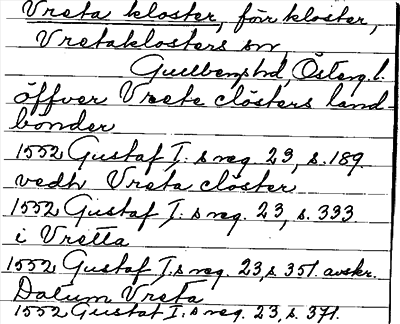 Vreta kloster, förr kloster,
Vretaklosters sn,
Gullbergs hd, Österg. l.
öffver Vrete clösters land-
bönder
1552 Gustaf I:s reg. 23, s. 189.
vedh Vreta clöster
1552 Gustaf I:s reg. 23, s. 333
i Vretta
1552 Gustaf I:s reg. 23, s 351. avskr.
Datum Vreta
1552 Gustaf I:s reg. 23, s. 371.